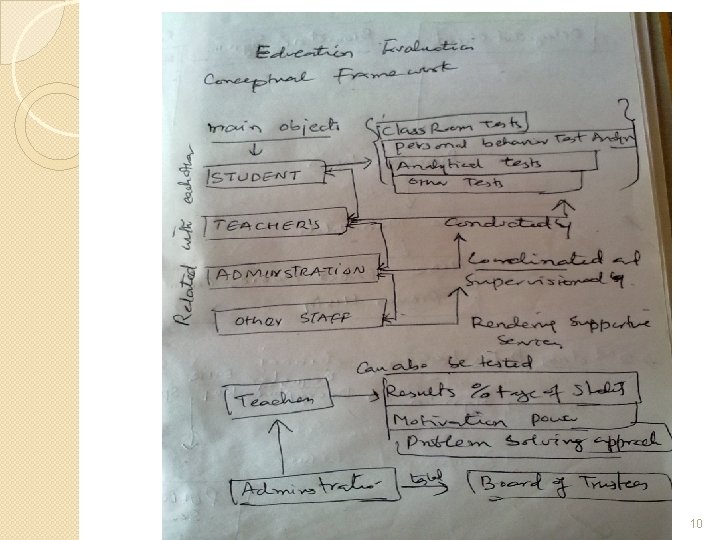 Education Evaluation
Conceptual Frame work
main objects
Related with eachother
Class Room Tests
personal behavior Test
Analytical tests
other Tests
STUDENT
TEACHER'S
Conducted by
ADMINSTRATION
Coordinated and
Supervisioned by.
Other STAFF
Rendering Supportive
Services
Can also be tested
Teacher
Results %tage of
Motivation power
Problem Solving approach
Administratio
Board of Trustees
10